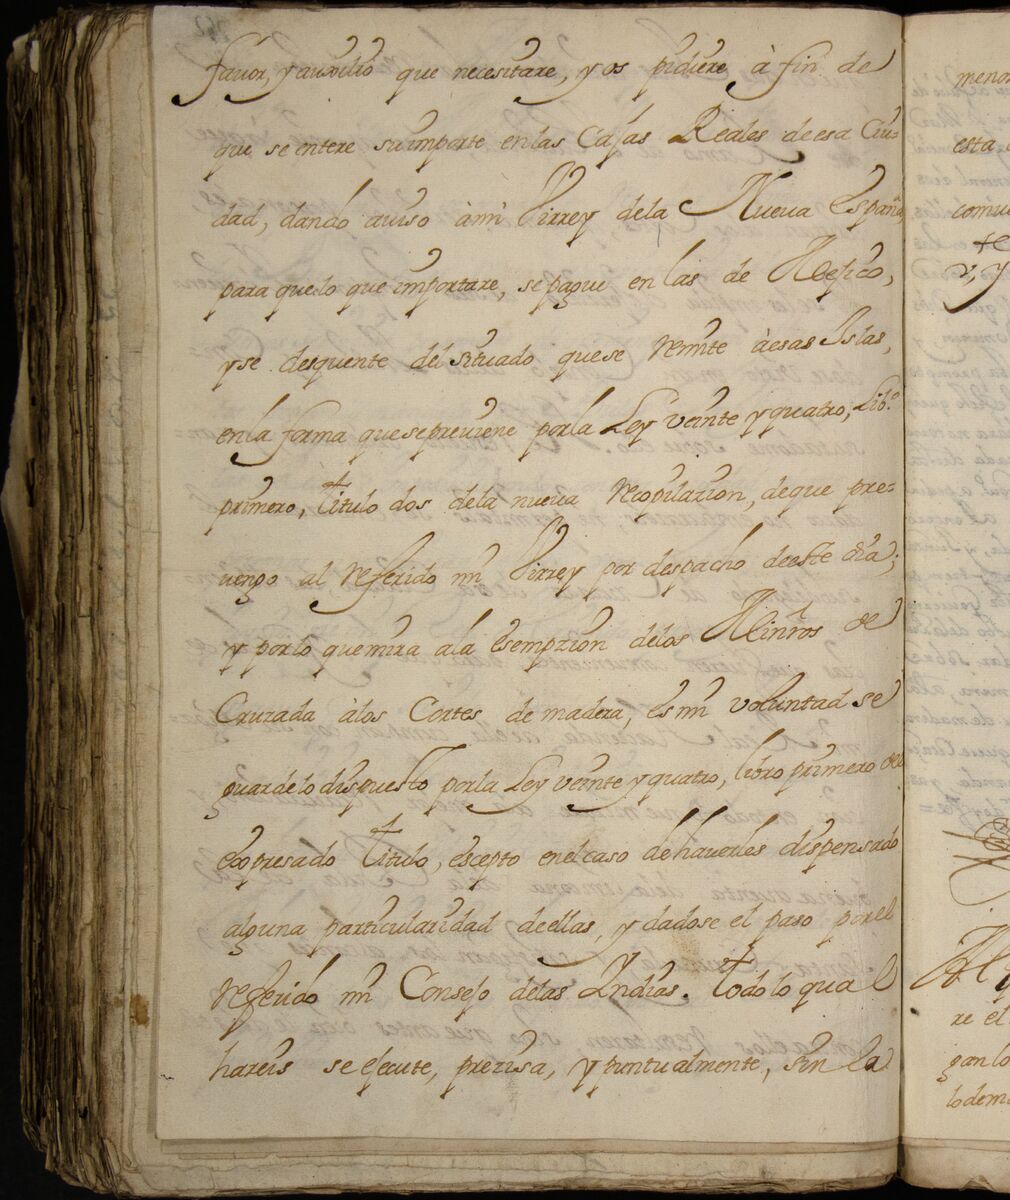 favor, y auxilio que necesitare, y os pidiere à fin de
que se entere su importe en las Cajas Reales de esa Ciu=
dad, dando aviso à mi Virrey dela Nueva España,
para que lo que importare, se pague en las de Mexico,
y se desquente del situado que se remite à esas Islas,
en la forma que se previene por la Ley veinte y quatro, Lib.º
primero, Titulo dos dela nueva recopilazion, de que pre=
vengo al referido mi Virrey por despacho de este dia;
y por lo que mira ala esempzion delos Minros de
Cruzada alos Cortes de madera, es mi voluntad se
guarde lo dispuesto por la Ley veinte y quatro, libro primero del
expresado Titulo, escepto en el caso de haverles dispensado
alguna particularidad de ellas, y dadose el paso por el
referido mi Consejo delas Yndias. Todo lo qual
hareis se ejecute, prezisa, y puntualmente, sin la
menor
esta
re el
gan lo
lo dem